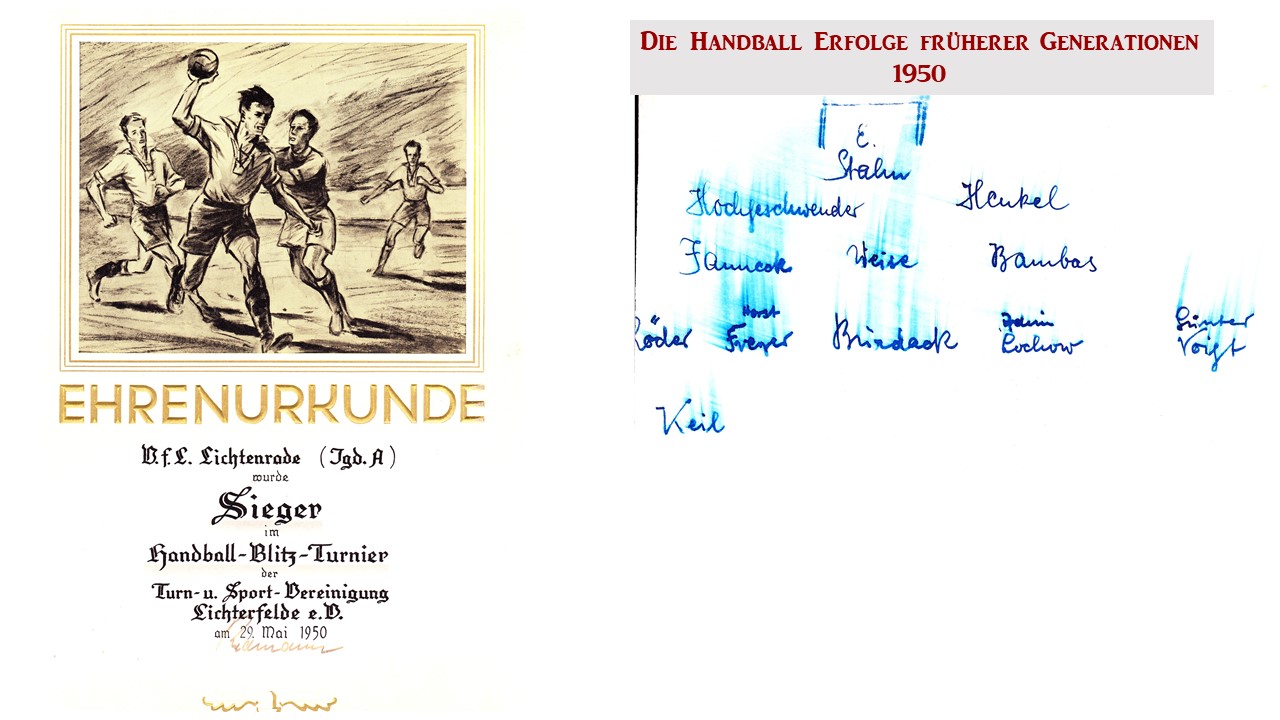 EHRENURKUNDE
V.f.L. Lichtenrade (Jgd. A)
wurde
Sieger
im
Handball-Blitz-Turnier
der
Turn- u. Sport-Vereinigung
Lichterfelde e.V.
am 29. Mai 1950
Die Handball Erfolge früherer Generationen
1950
E.
Stahn
Hochgeschwender Henkel
Weise Bambas
Horst Günter
Röder Freyer Lochow Voigt
Keil